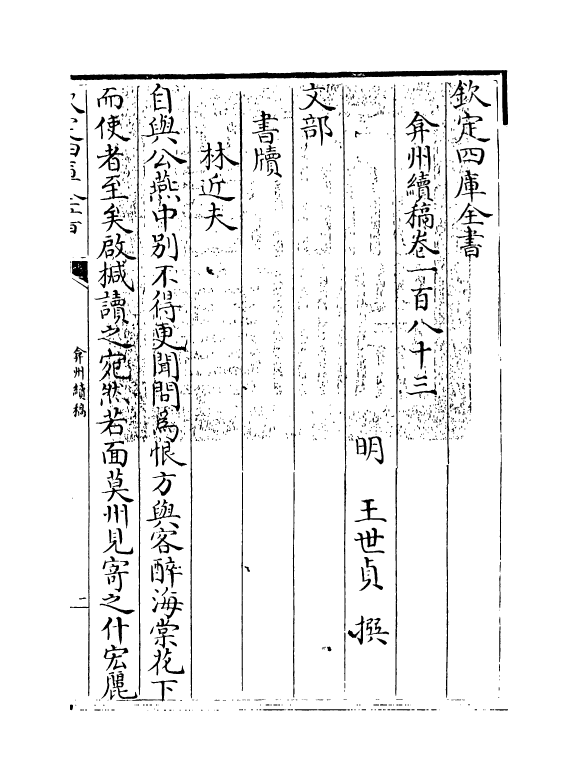 欽定四庫全書
弇州續稿卷一百八十三
明 王世貞 撰
文部
書牘
林近夫
自與公燕中別不得更聞問為恨方與客醉海棠花下
而使者至矣啟揻讀之宛然若面莫州見寄之什宏麗
欽定四庫全書
弇州續稿